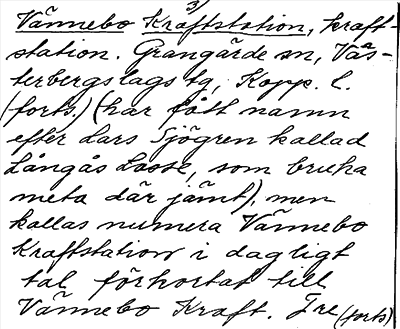 3/
Vännebo Kraftstation, kraft-
station. Grangärde sn, Väs-
terbergslags tg, Kopp. l.
(forts.) (har fått namn
efter Lars Sjögren kallad
Långås Lasse, som bruka
meta där jämt), men
kallas numera Vännebo
Kraftstation i dagligt
tal förkortat till
Vännebo Kraft. Tre (forts)